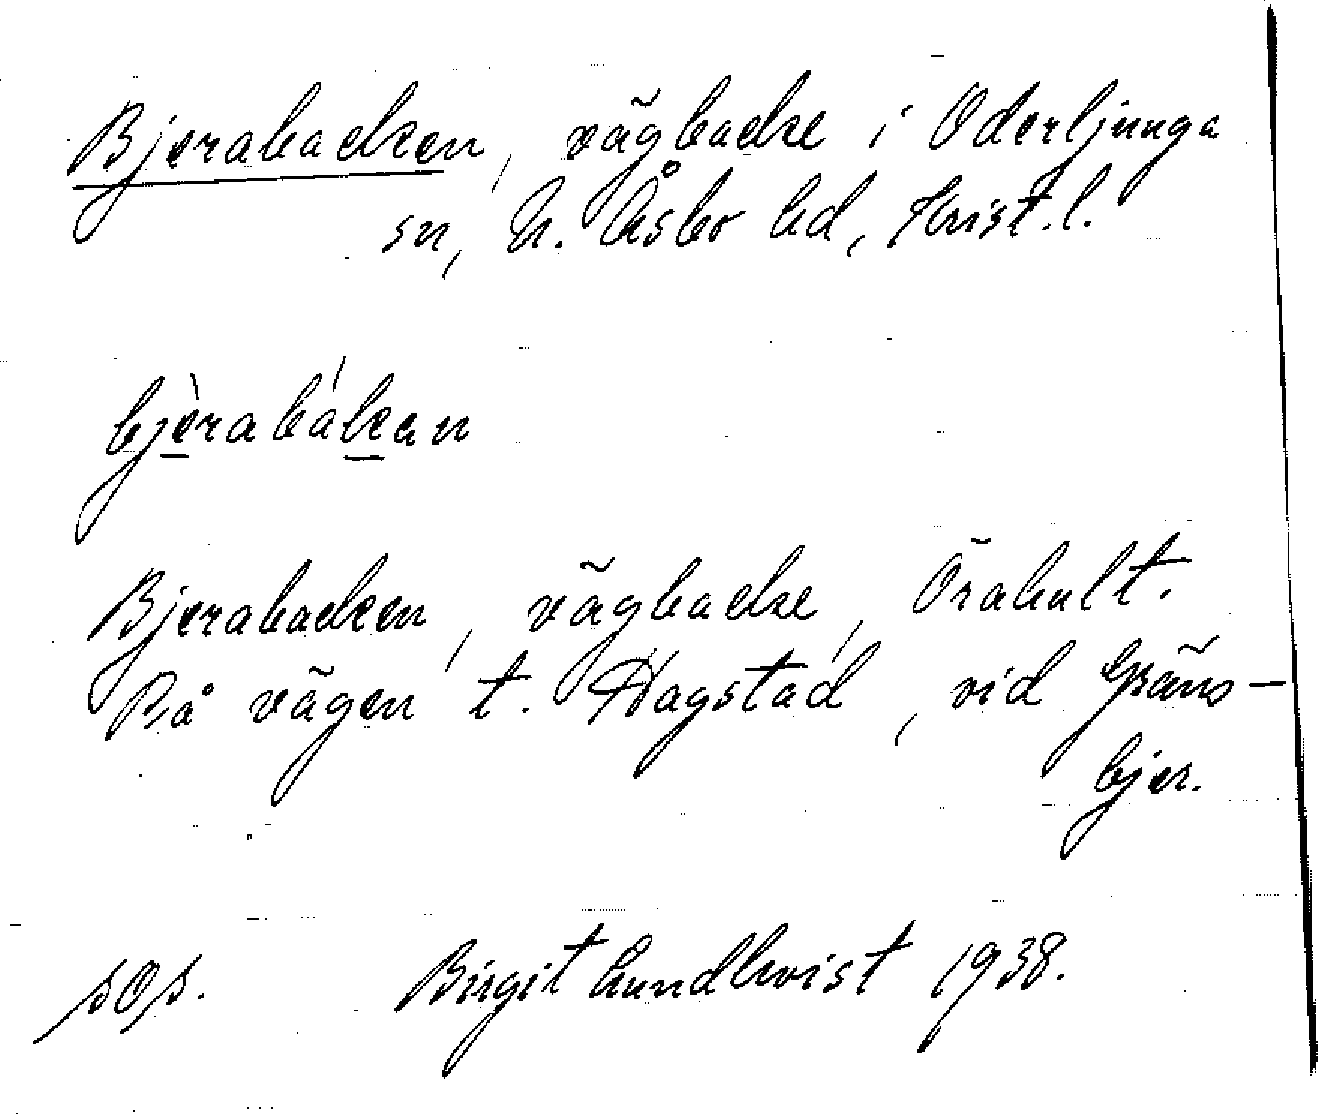 Bjerabacken, vägbacke i Oderljunga
sn, N. Åsbo hd, Krist. l.
bjèrabákan
Bjerabacken, vägbacke, Örahult.
På vägen t. Hagstad, vid Gräns-
bjer.
sOs. Birgit Lundkvist 1938.